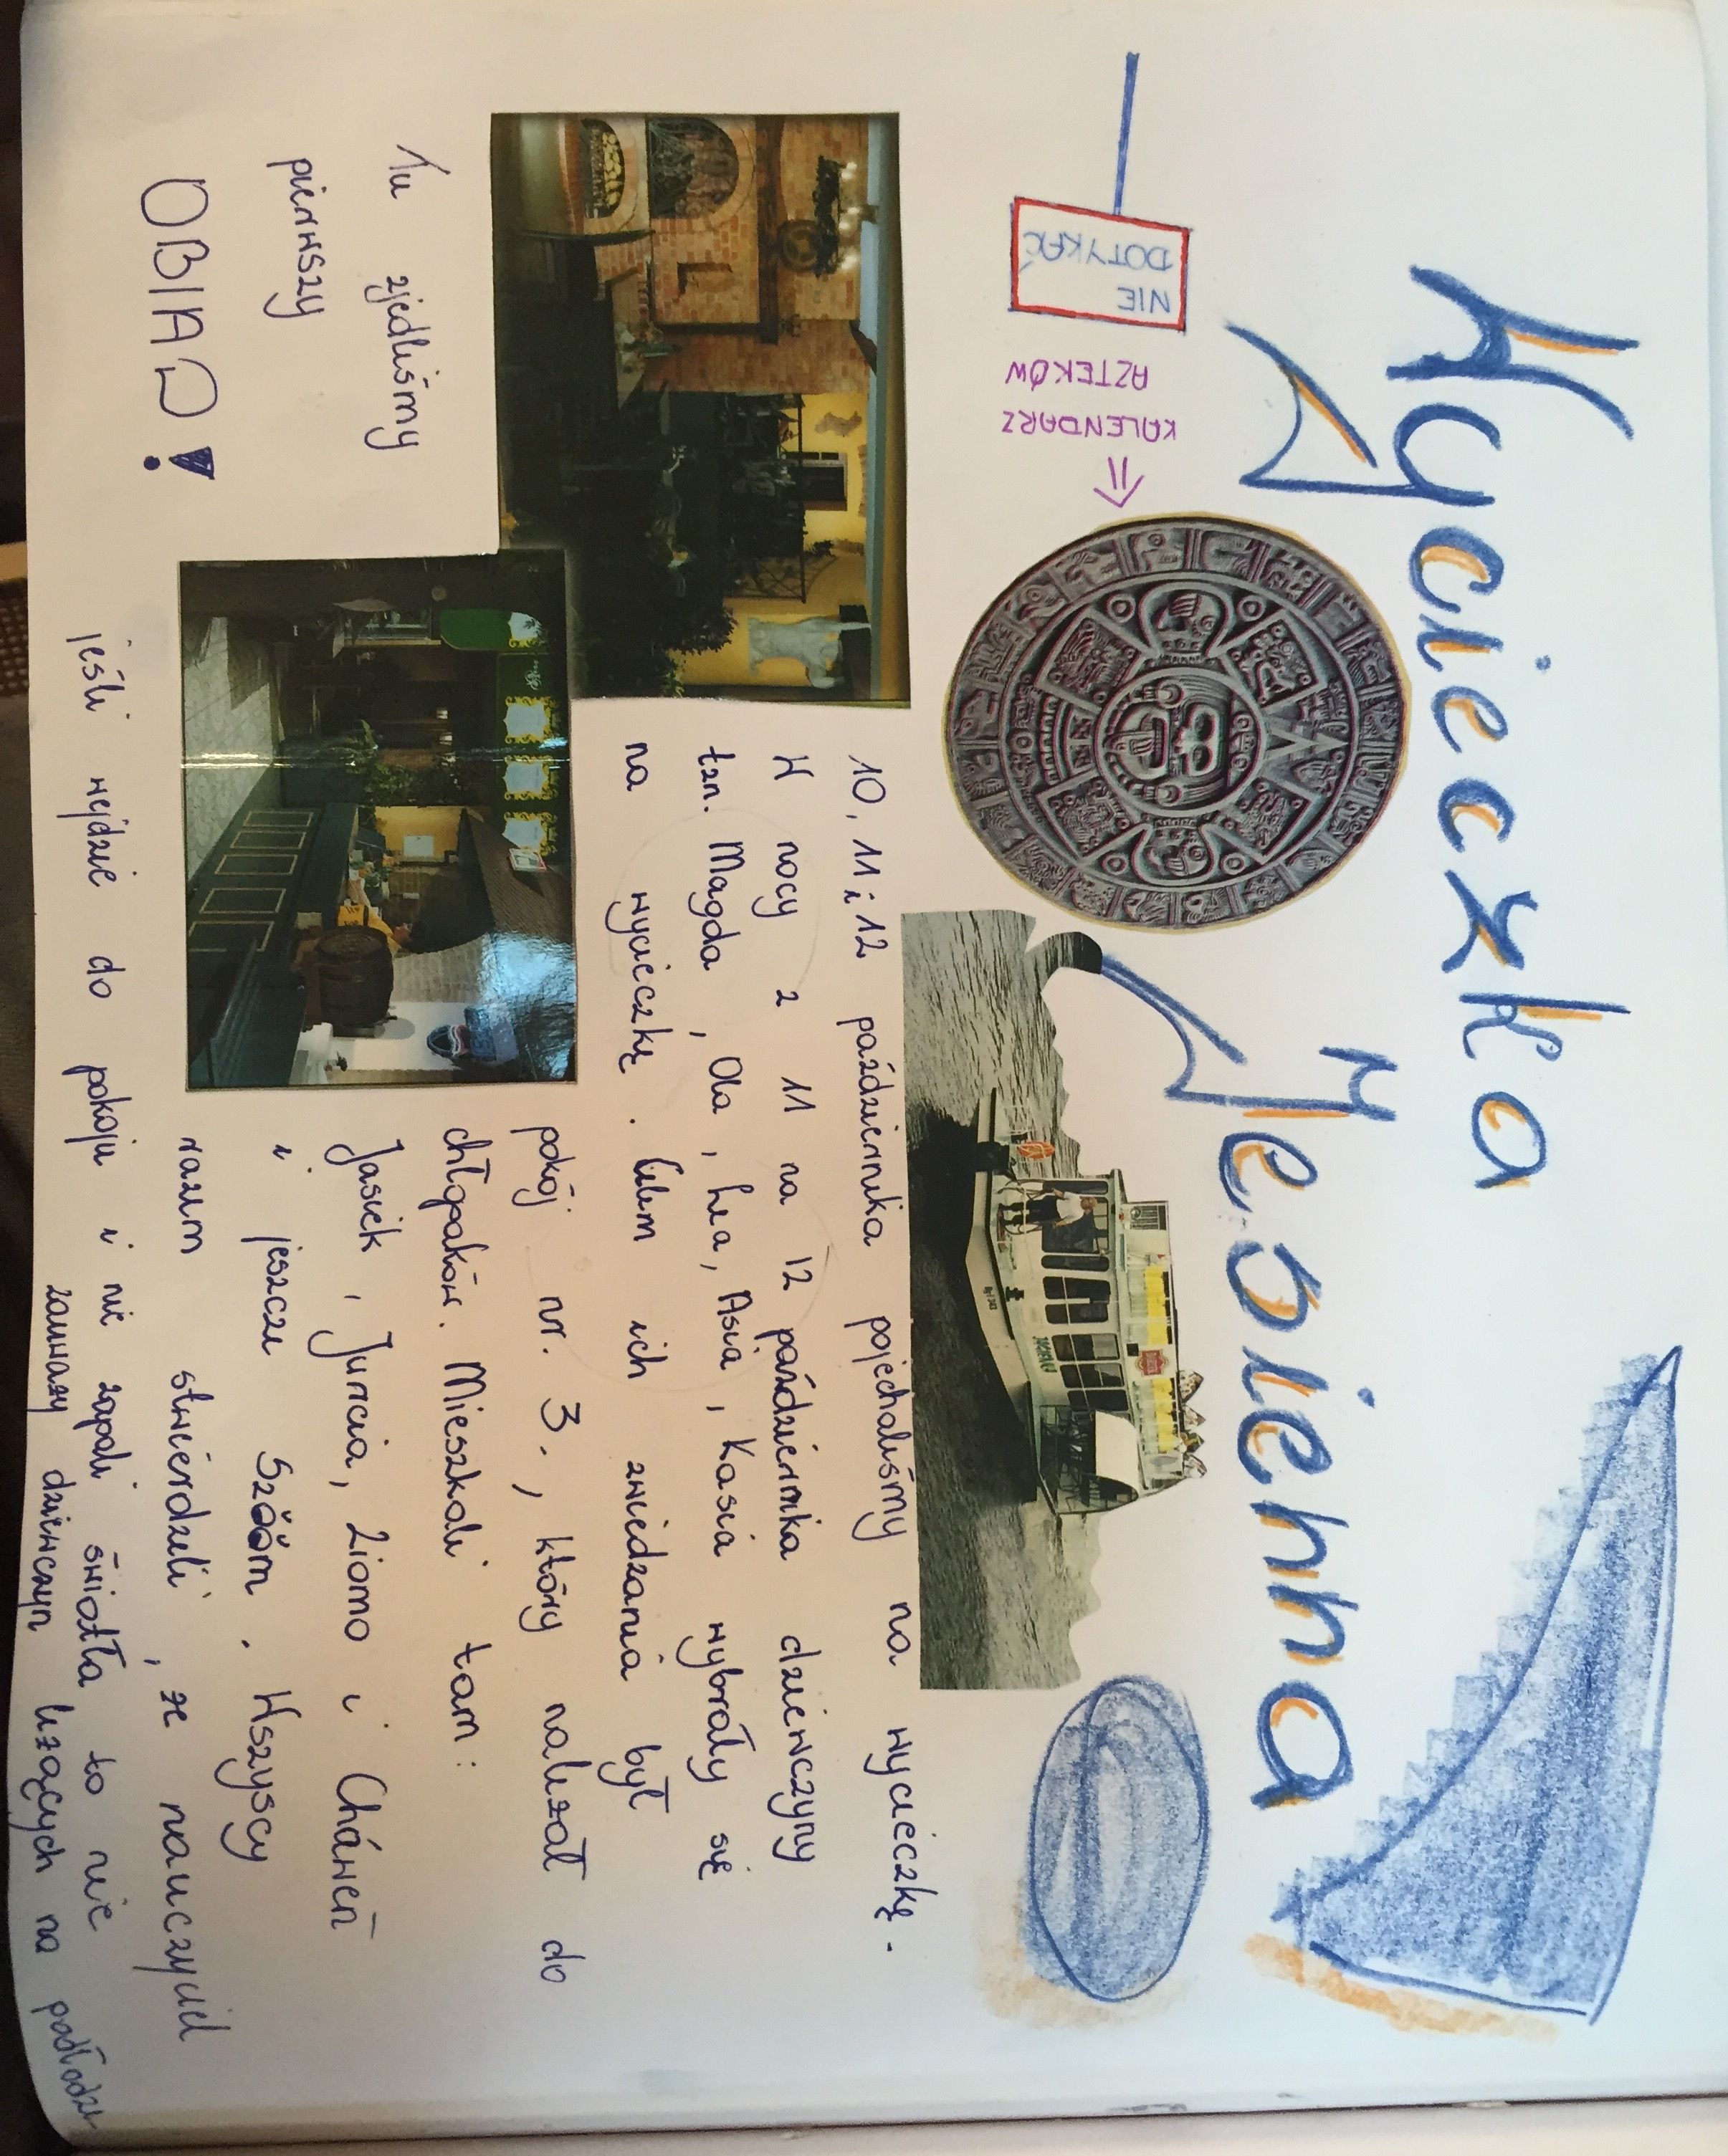 Wycieczka
Wrosienna
NIE
DOTYKAĆ
KALENDARZ
AZTEKÓW
10, 11 i 12 października pojechaliśmy na wycieczkę.
W nocy z 11 na 12 października dziewczyny
tzn. Magda, Ola, Lea, Asia, Kasia wybrały się
na wycieczkę. Celem ich zwiedzania był
pokój nr. 3., który należał do
chłopaków. Mieszkali tam:
Jasiek, Juncia, Ziomo i
i jeszcze. Wszyscy
razem stwierdzili, że nauczyciel
jeśli wejdzie do pokoju i nie zapali światła to nie
zauważy dziewczyn leżących na podłodze
Tu zjedliśmy
pierwszy
OBIAD!